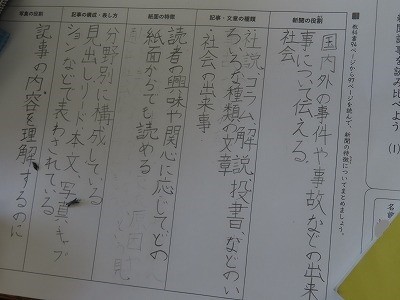 新聞
読み比べよう
(1)
名前
教科書94ページから97ページを読んで、新聞の特徴についてまとめましょう。
新聞の役割
国内外の事件や事故などの出来
事について伝える。
社会
記事・文章の種類
社説、コラム、解説、投書、などのい
ろいろな種類の文章
社会の出来事
紙面の特徴
読者の興味や関心に応じてどの
紙面からでも読める
記事の構成・表し方
分野別に構成している
見出し、リード、本文、写真、キャプ
ションなどで表わされている
写真の役割
記事の内容を理解するのに